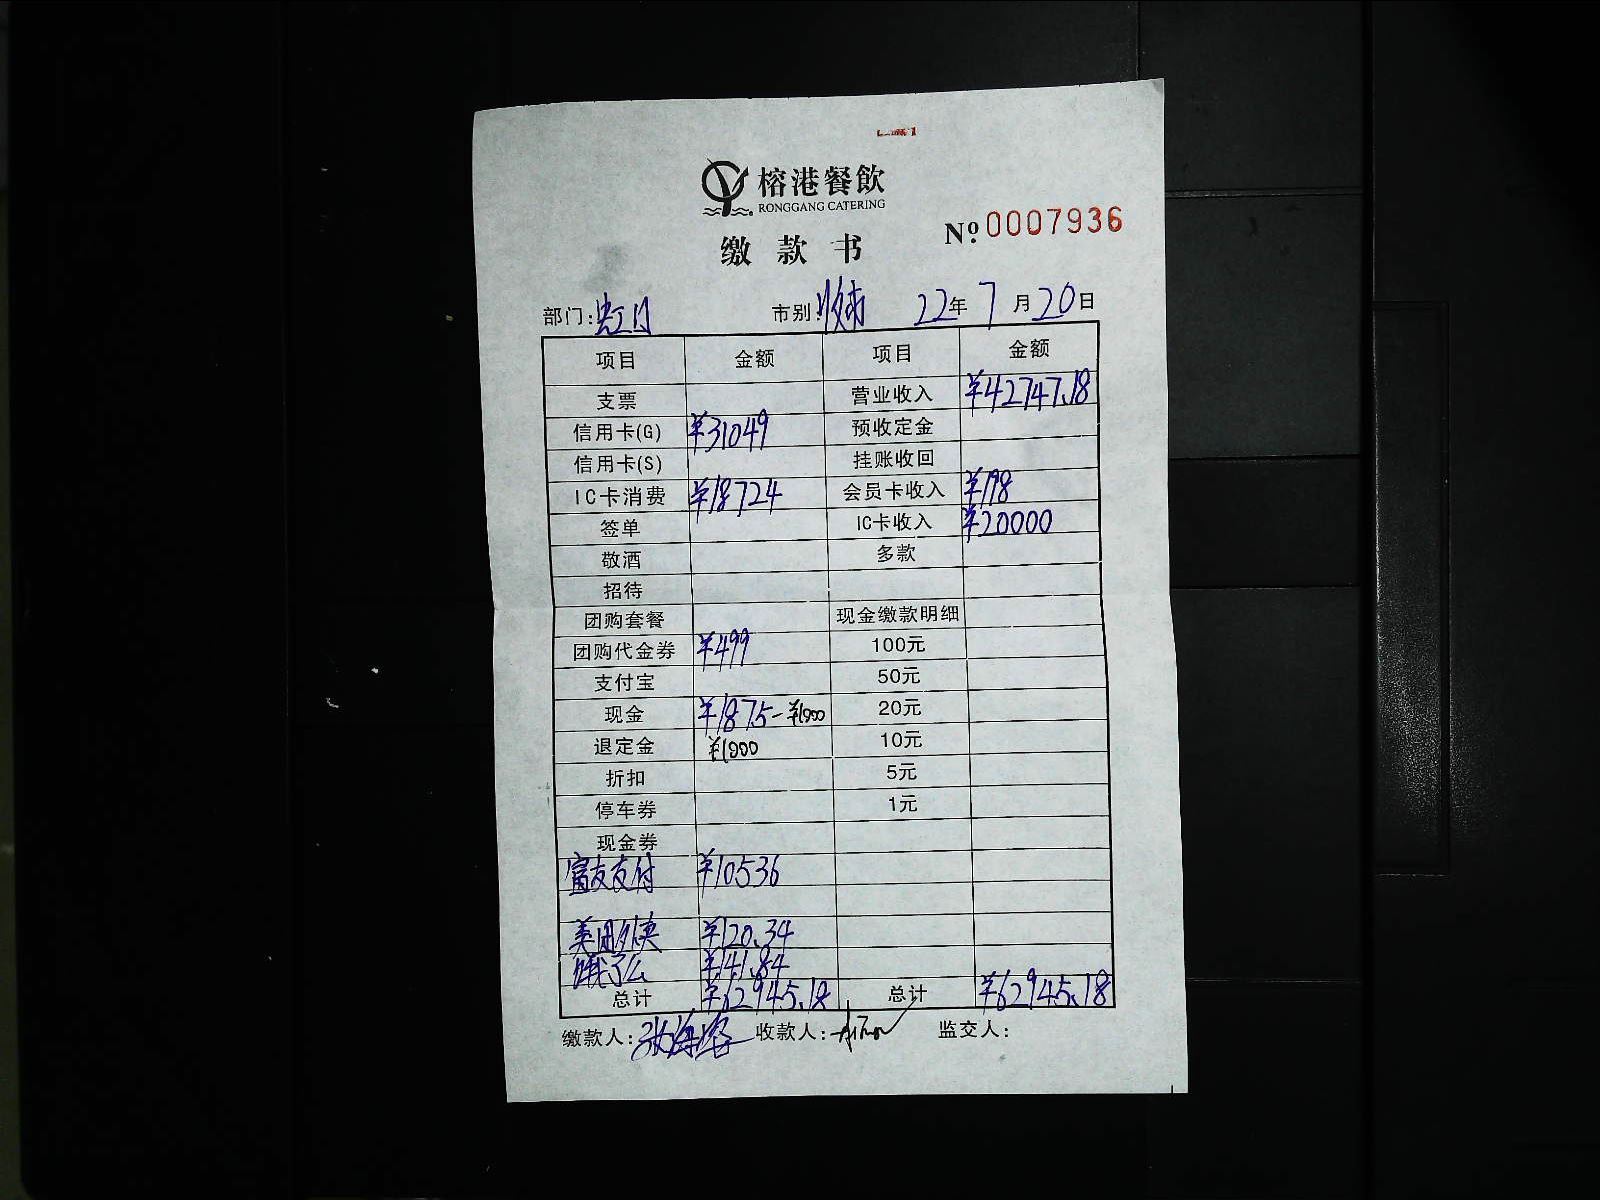 榕港餐飲
RONGGANG CATERING
缴款书 Nº 0007936
部门:虹口 市别: 22年7月20日
项目 金额 项目 金额
支票 营业收入 ¥42747.18
信用卡(G) ¥31049 预收定金
信用卡(S) 挂账收回
IC卡消费 ¥18724 会员卡收入 ¥198
签单 IC卡收入 ¥20000
敬酒 多款
招待
团购套餐 现金缴款明细
团购代金券 ¥499 100元
支付宝 50元
现金 ¥1875-¥1000 20元
退定金 ¥1000 10元
折扣 5元
停车券 1元
现金券
富友支付 ¥10536
美团外卖 ¥120.34
饿了么 ¥141.84
总计 ¥62945.18 总计 ¥62945.18
缴款人: 收款人: 监交人: